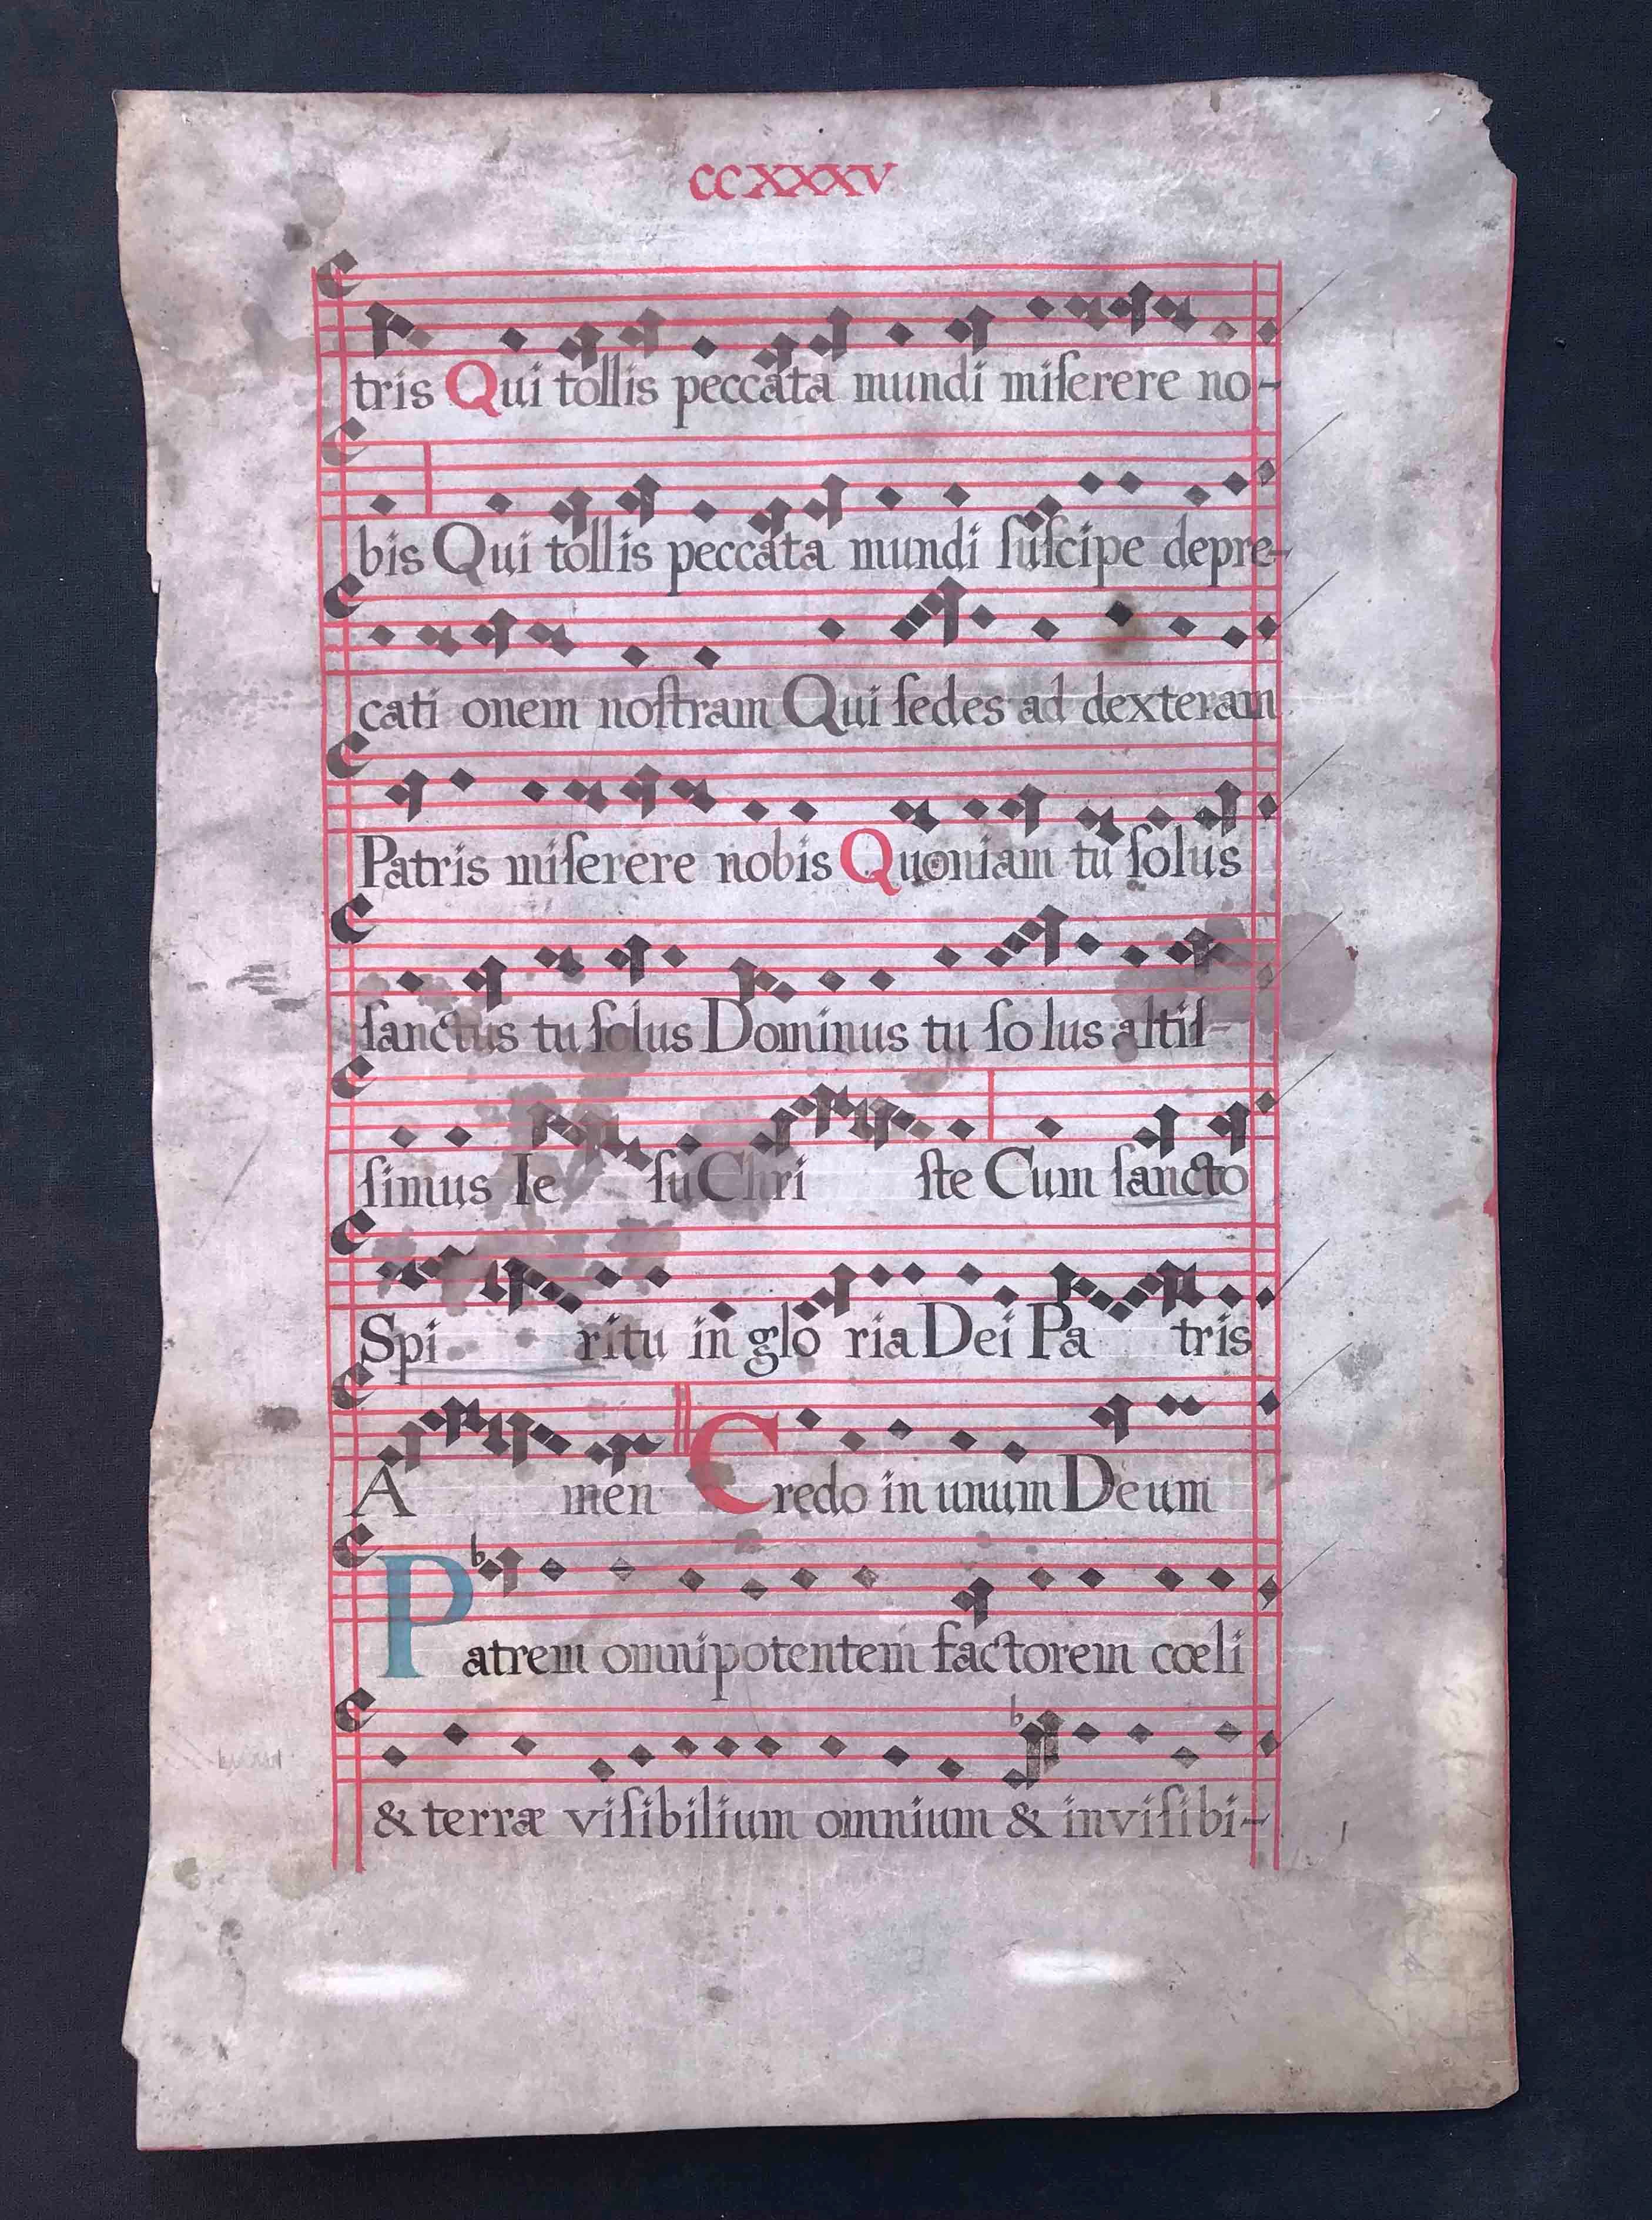 CCXXXV
tris Qui tollis peccata mundi miſerere no-
bis Qui tollis peccata mundi ſuſcipe depre-
cati onem noſtram Qui ſedes ad dexteram
Patris miſerere nobis Quoniam tu ſolus
ſanctus tu ſolus Dominus tu ſo lus altiſ-
ſimus Ie ſu Chri ſte Cum ſancto
Spi ritu in glo ria Dei Pa tris
A men Credo in unum Deum
Patrem omnipotentem factorem cœli
& terræ viſibilium omnium & inviſibi-